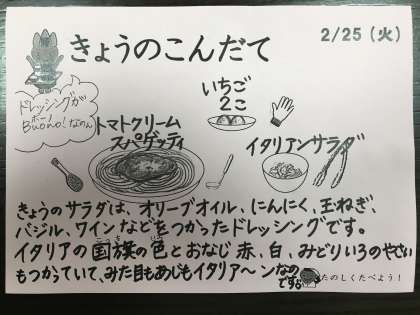 2/25（火）
きょうのこんだて
ドレッシングが
ボーノ
Buono!なのん
いちご
2こ
トマトクリーム
スパゲッティ
イタリアンサラダ
きょうのサラダは、オリーブオイル、にんにく、玉ねぎ、
バジル、ワインなどをつかったドレッシングです。
イタリアの国旗の色とおなじ赤、白、みどりいろのやさい
もつかっていて、みた目もあじもイタリア〜ンなの
です。
たのしくたべよう！